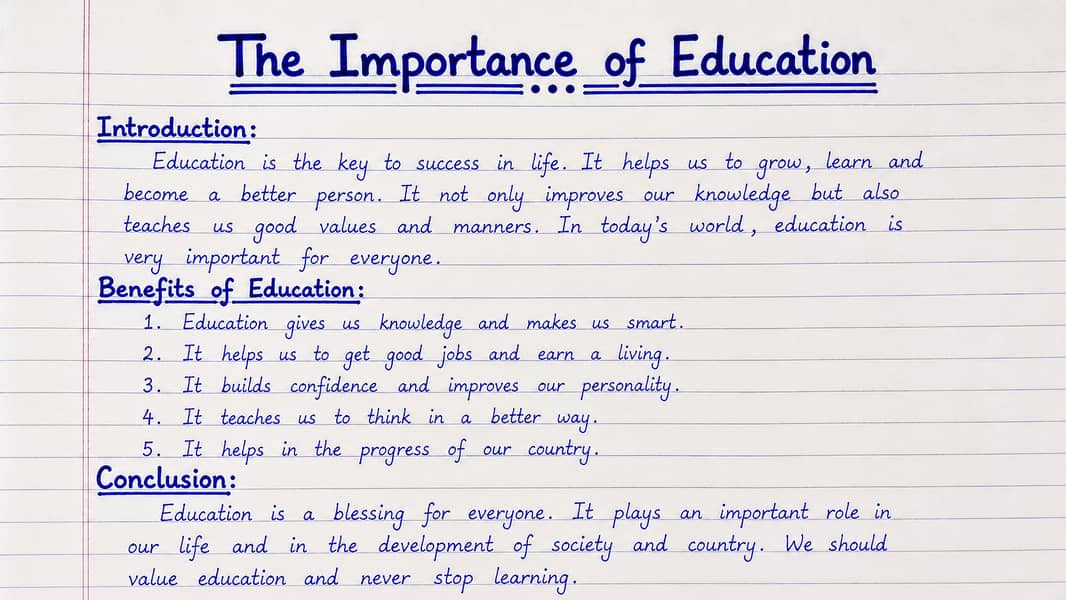 The Importance of Education
Introduction:
Education is the key to success in life. It helps us to grow, learn and
become a better person. It not only improves our knowledge but also
teaches us good values and manners. In today's world, education is
very important for everyone.
Benefits of Education:
1. Education gives us knowledge and makes us smart.
2. It helps us to get good jobs and earn a living.
3. It builds confidence and improves our personality.
4. It teaches us to think in a better way.
5. It helps in the progress of our country.
Conclusion:
Education is a blessing for everyone. It plays an important role in
our life and in the development of society and country. We should
value education and never stop learning.